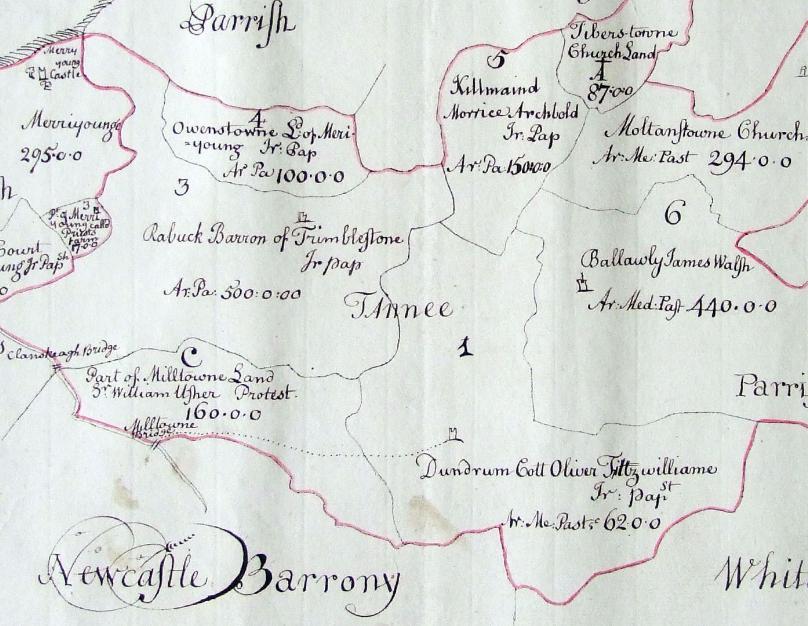 Parrish
Tiberstowne
Church Land
A
87·00
Merry
young
Castle
Merriyounge
295·0·0
4
Owenstowne Ld. of Meri-
=young Ir: Pap
Ar Pa 100·0·0
5
Killmaind
Morrice Archbold
Ir: Pap
Ar: Pa 150·0·0
Moltanstowne Church
Ar: Me: Past 294·0·0
3
Rabuck Barron of Trimblestone
Ir pap
Ar: Pa: 500:0:00
3
Pt. of Merri
young calld
Priests
farm
7·0·0
Court
ung Ir Pap st
0
6
Ballawly James Walsh
Ar: Med: Past 440·0·0
Tannee
1
Clanskeagh Bridge
C
Part of Milltowne Land
Sr. William Usher Protest.
160·0·0
Milltowne
Bridge
Parri
Dundrum Coll Oliver Fittzwilliame
Ir: pap st
Ar: Me: Past: c 62·0·0
Newcastle Barrony
Whit